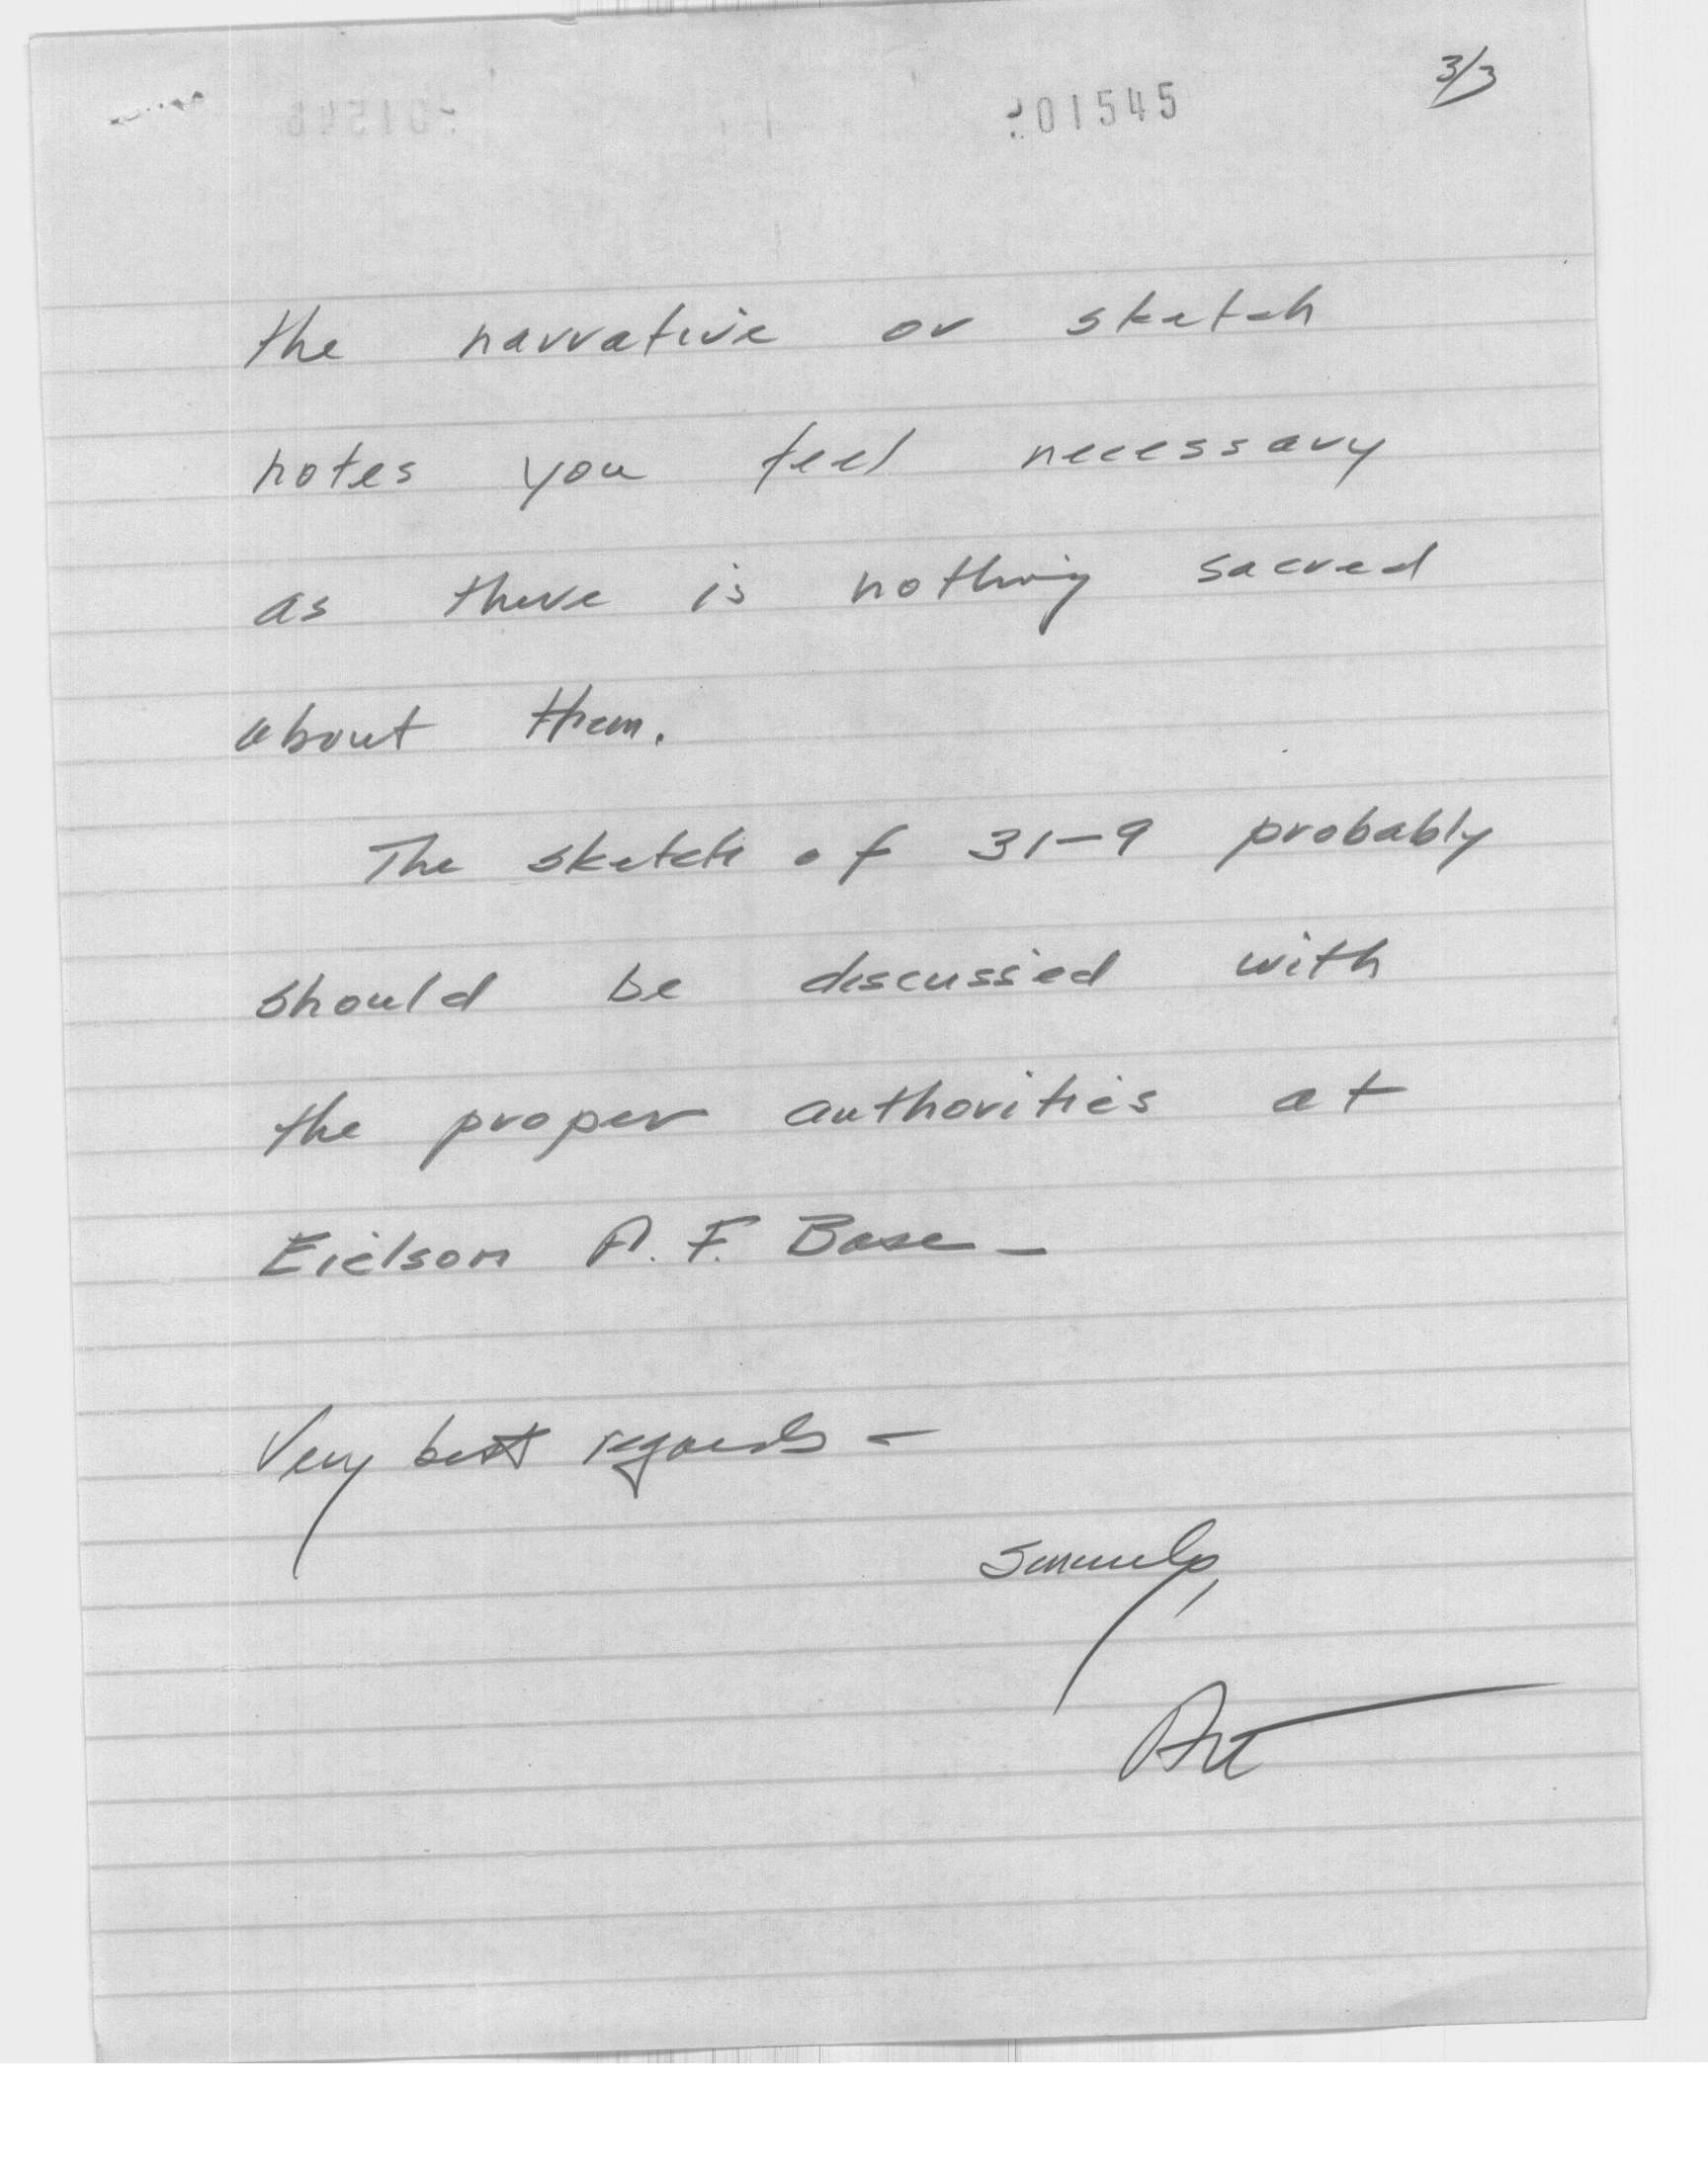 3/3
201545
the narrative or sketch
notes you feel necessary
as there is nothing sacred
about them.
The sketch of 31-9 probably
should be discussed with
the proper authorities at
Eielson A. F. Base -
Very best regards -
Sincerely,
Art